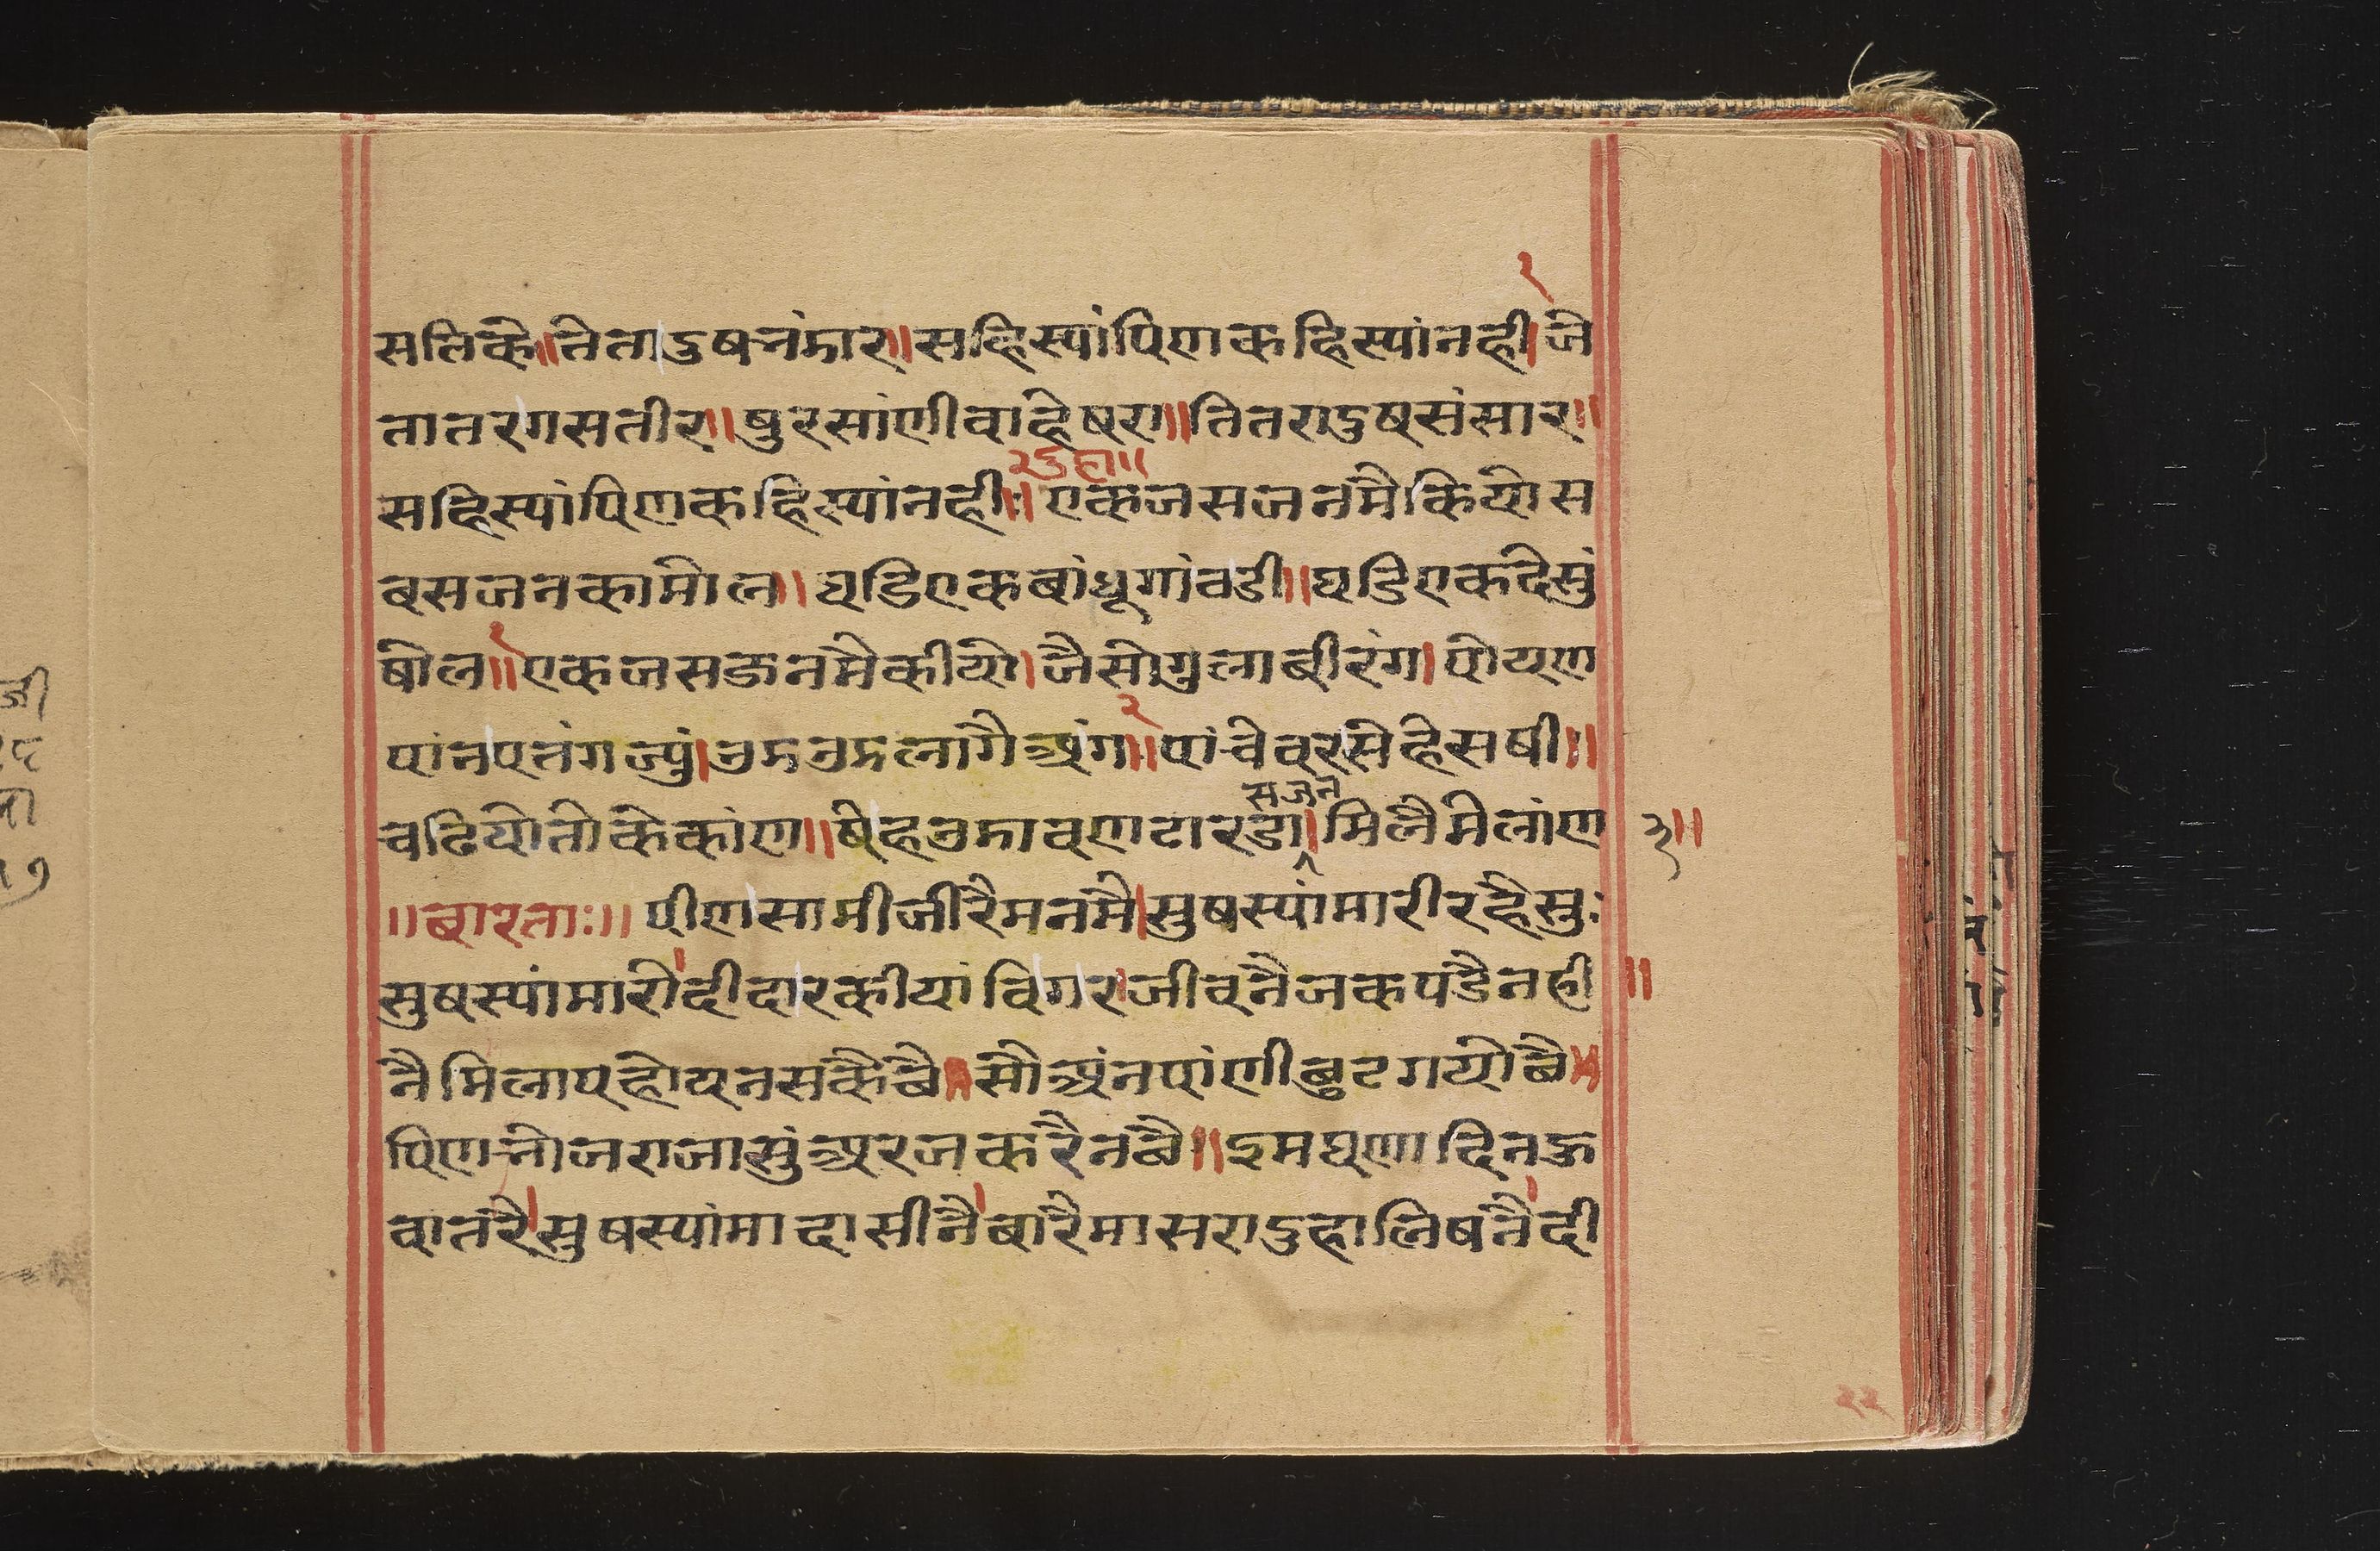 १
सतिके॥तेता दुषनंमार॥सहिस्यांपिणकहिस्यांनही।जे
तातरगसतीर॥षुरसांणीवाहेषरा॥तितरादुषसंसार॥
२दुहा॥
सहिस्यांपिणकहिस्यांनही॥एकजसजनमैकियोस
बसजनकामोल॥घडिएकबांधूगांवडी॥घडिएकदेसुं
१
षोल॥एकजसजनमैकीयो।जैसोगुलाबीरंग।पोयण
२
पांनपतंगज्युं।नमनमलागैअंग॥पांचेवरसेहेसषी॥
सजन
चढियोतोकेकांण॥षेहनमावणटारडा।मिलैमेलांण ३॥
॥बारताः॥पीणसामीजीरैमनमै।सुषस्यांमारीरहैसुः
सुषस्यांमारीदीदारकीयांविगरजीवनैजकपडैनही॥
नैमिलापहोयनसकैबै॥सोअंनपांणीबुटगयोबै॥
पिणनोजराजासुंअरजकरैनबै॥इमघणादिनऊ
वातरै।सुषस्यांमादासीनैबारैमासरादुहालिषनैदी
२२